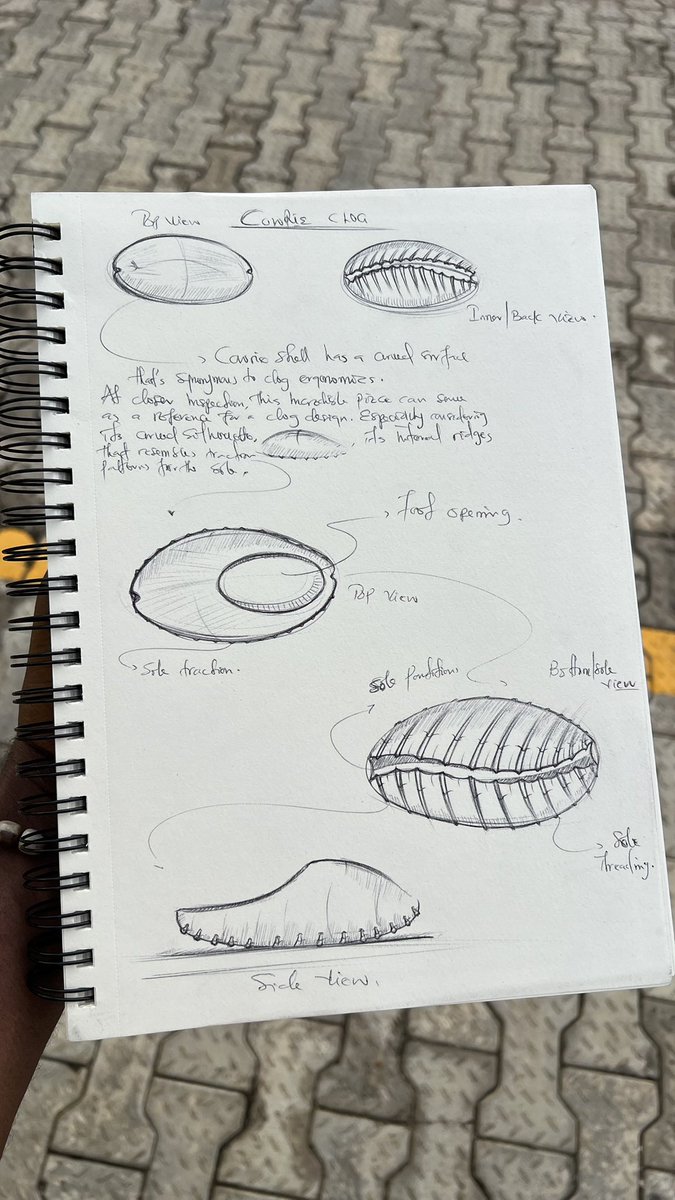 Top view
Cowrie Clog
Inner/Back view.
Cowrie Shell has a curved surface
that's synonymous to clog ergonomics.
At closer inspection, this incredible piece can serve
as a reference for a clog design. Especially considering
its curved silhouette, its internal ridges
that resembles traction
patterns for the sole.
Foot opening.
Top view
Sole traction.
Sole Partition
Bottom/sole
view
Sole
Threading.
Side view.